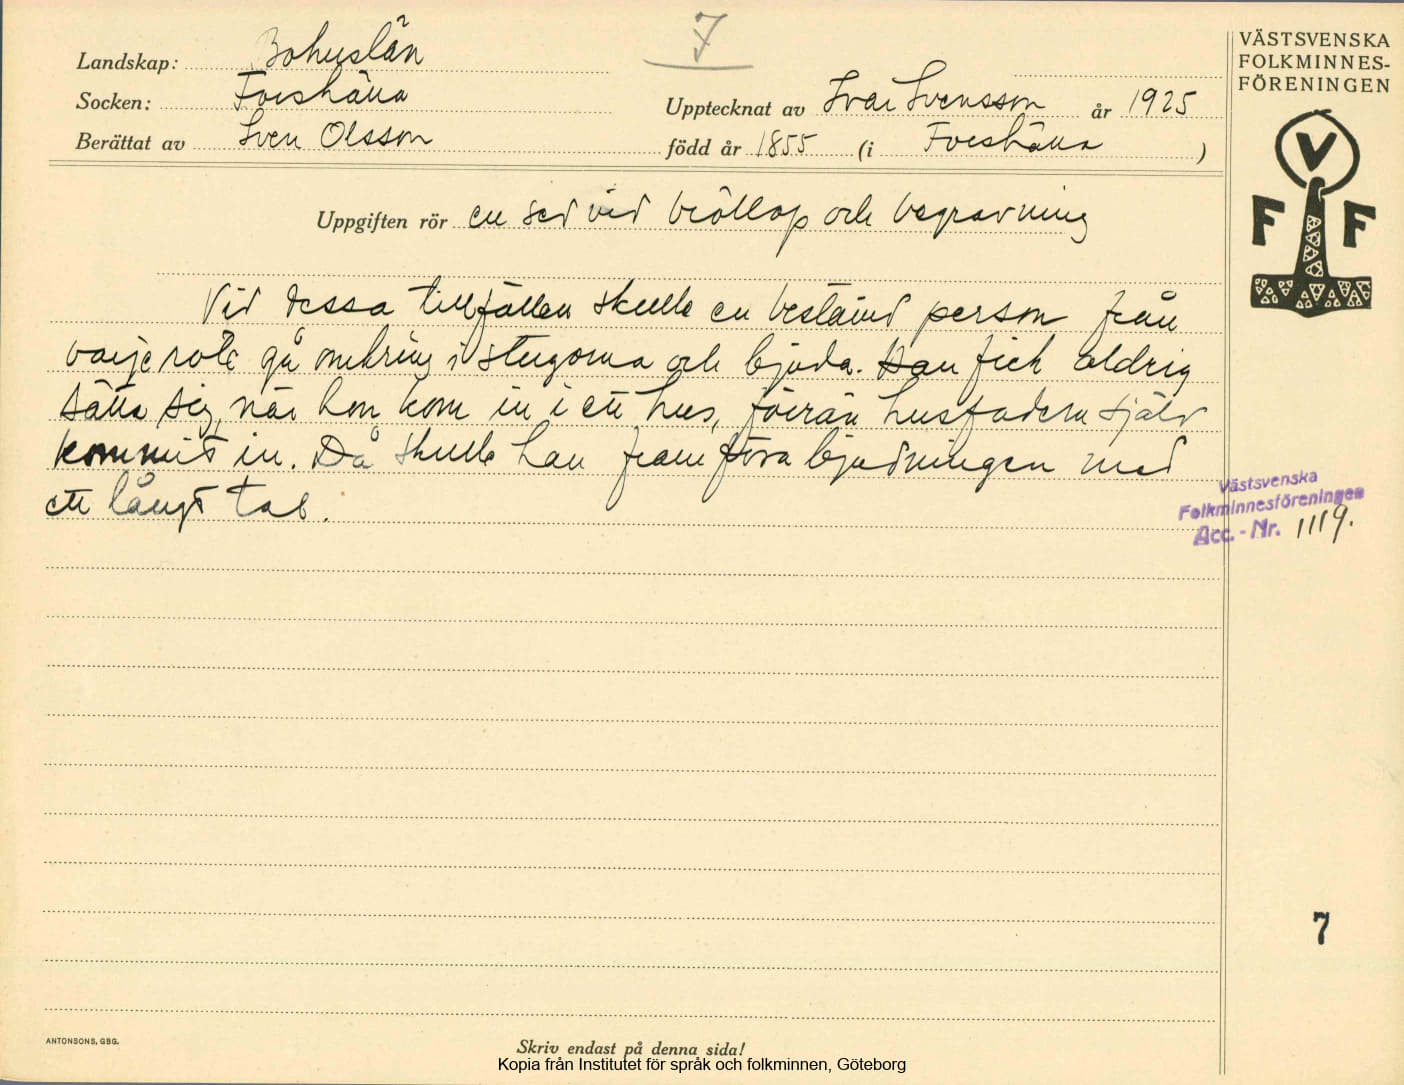 F
VÄSTSVENSKA
FOLKMINNES-
FÖRENINGEN
Landskap: Bohuslän
Socken: Forshälla
Upptecknat av Ivar Ivensson år 1925
Berättat av Sven Olsson född år 1855 (i Forshälla)
V
F F
Uppgiften rör en sed vid bröllop och begravning
Vid dessa tillfällen skulle en bestämd person från
varje rote gå omkring i stugorna och bjuda. Han fick aldrig
sätta sig, när hon kom in i ett hus, förrän husfadern själv
kommit in. Då skulle han framföra bjudningen med
ett långt tal.
Västsvenska
Folkminnesföreningen
Acc.-Nr. 1119.
7
ANTONSONS, GBG.
Skriv endast på denna sida!
Kopia från Institutet för språk och folkminnen, Göteborg